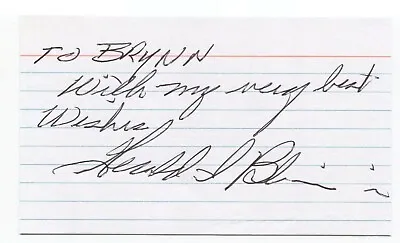 TO BRYNN
With my very best
Wishes